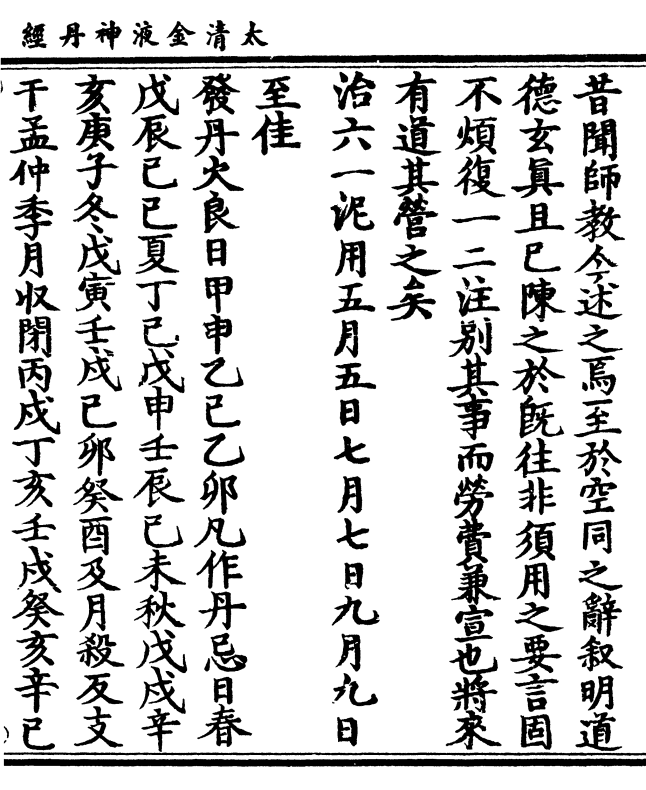 太清金液神丹經
昔聞師教今述之焉至於空同之辭叙明道
德玄真且已陳之於旣往非須用之要言固
不煩復一二注別其事而勞費兼宣也將來
有道其營之矣
治六一泥用五月五日七月七日九月九日
至佳
發丹火良日甲申乙巳乙卯凡作丹忌日春
戊辰己巳夏丁巳戊申壬辰己未秋戊戌辛
亥庚子冬戊寅壬戌己卯癸酉及月殺反支
干孟仲季月收閉丙戌丁亥壬戌癸亥辛巳